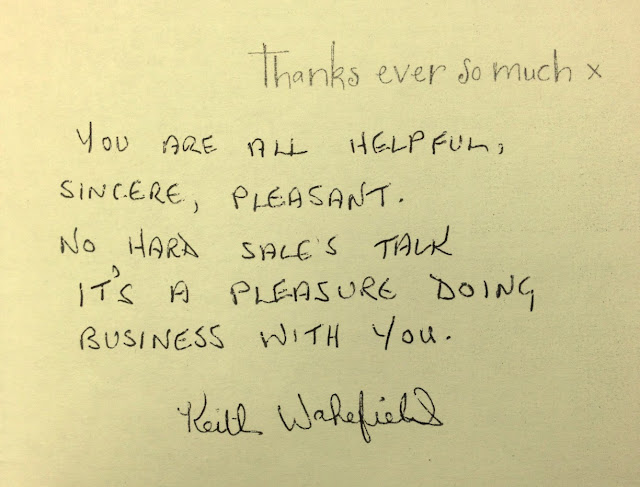 Thanks ever so much x
YOU ARE ALL HELPFUL,
SINCERE, PLEASANT.
NO HARD SALE'S TALK
IT'S A PLEASURE DOING
BUSINESS WITH YOU.
Keith Wakefield